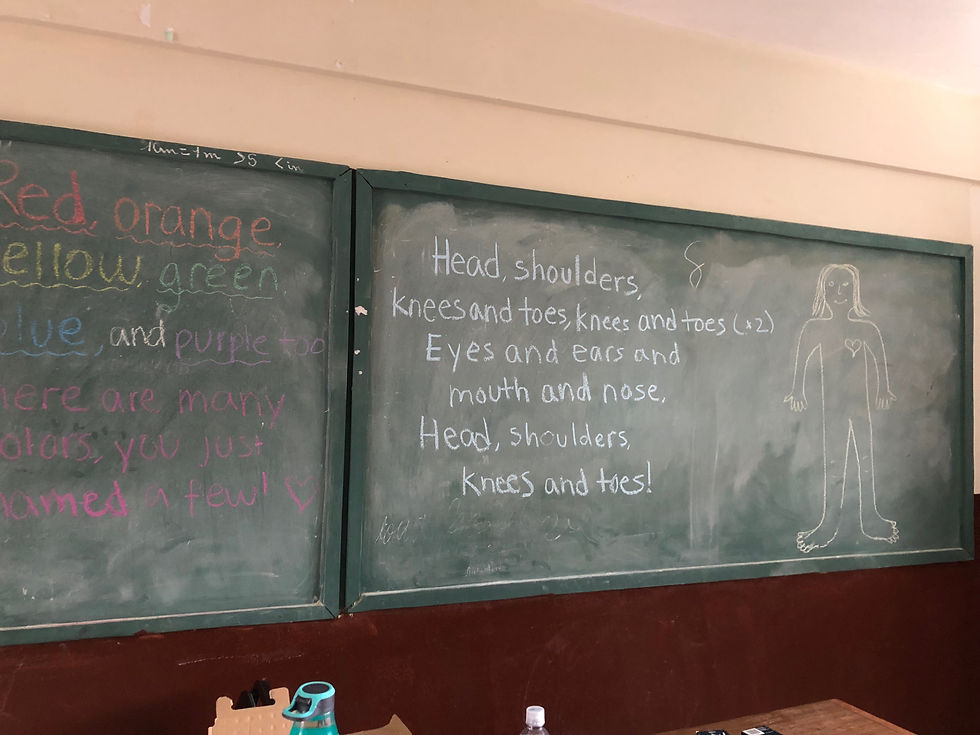 1cm=1m >5 <in
Red, orange,
ellow, green,
blue, and purple too
here are many
colors, you just
named a few! ♡
Head, shoulders,
knees and toes, knees and toes (x2)
Eyes and ears and
mouth and nose,
Head, shoulders,
knees and toes!